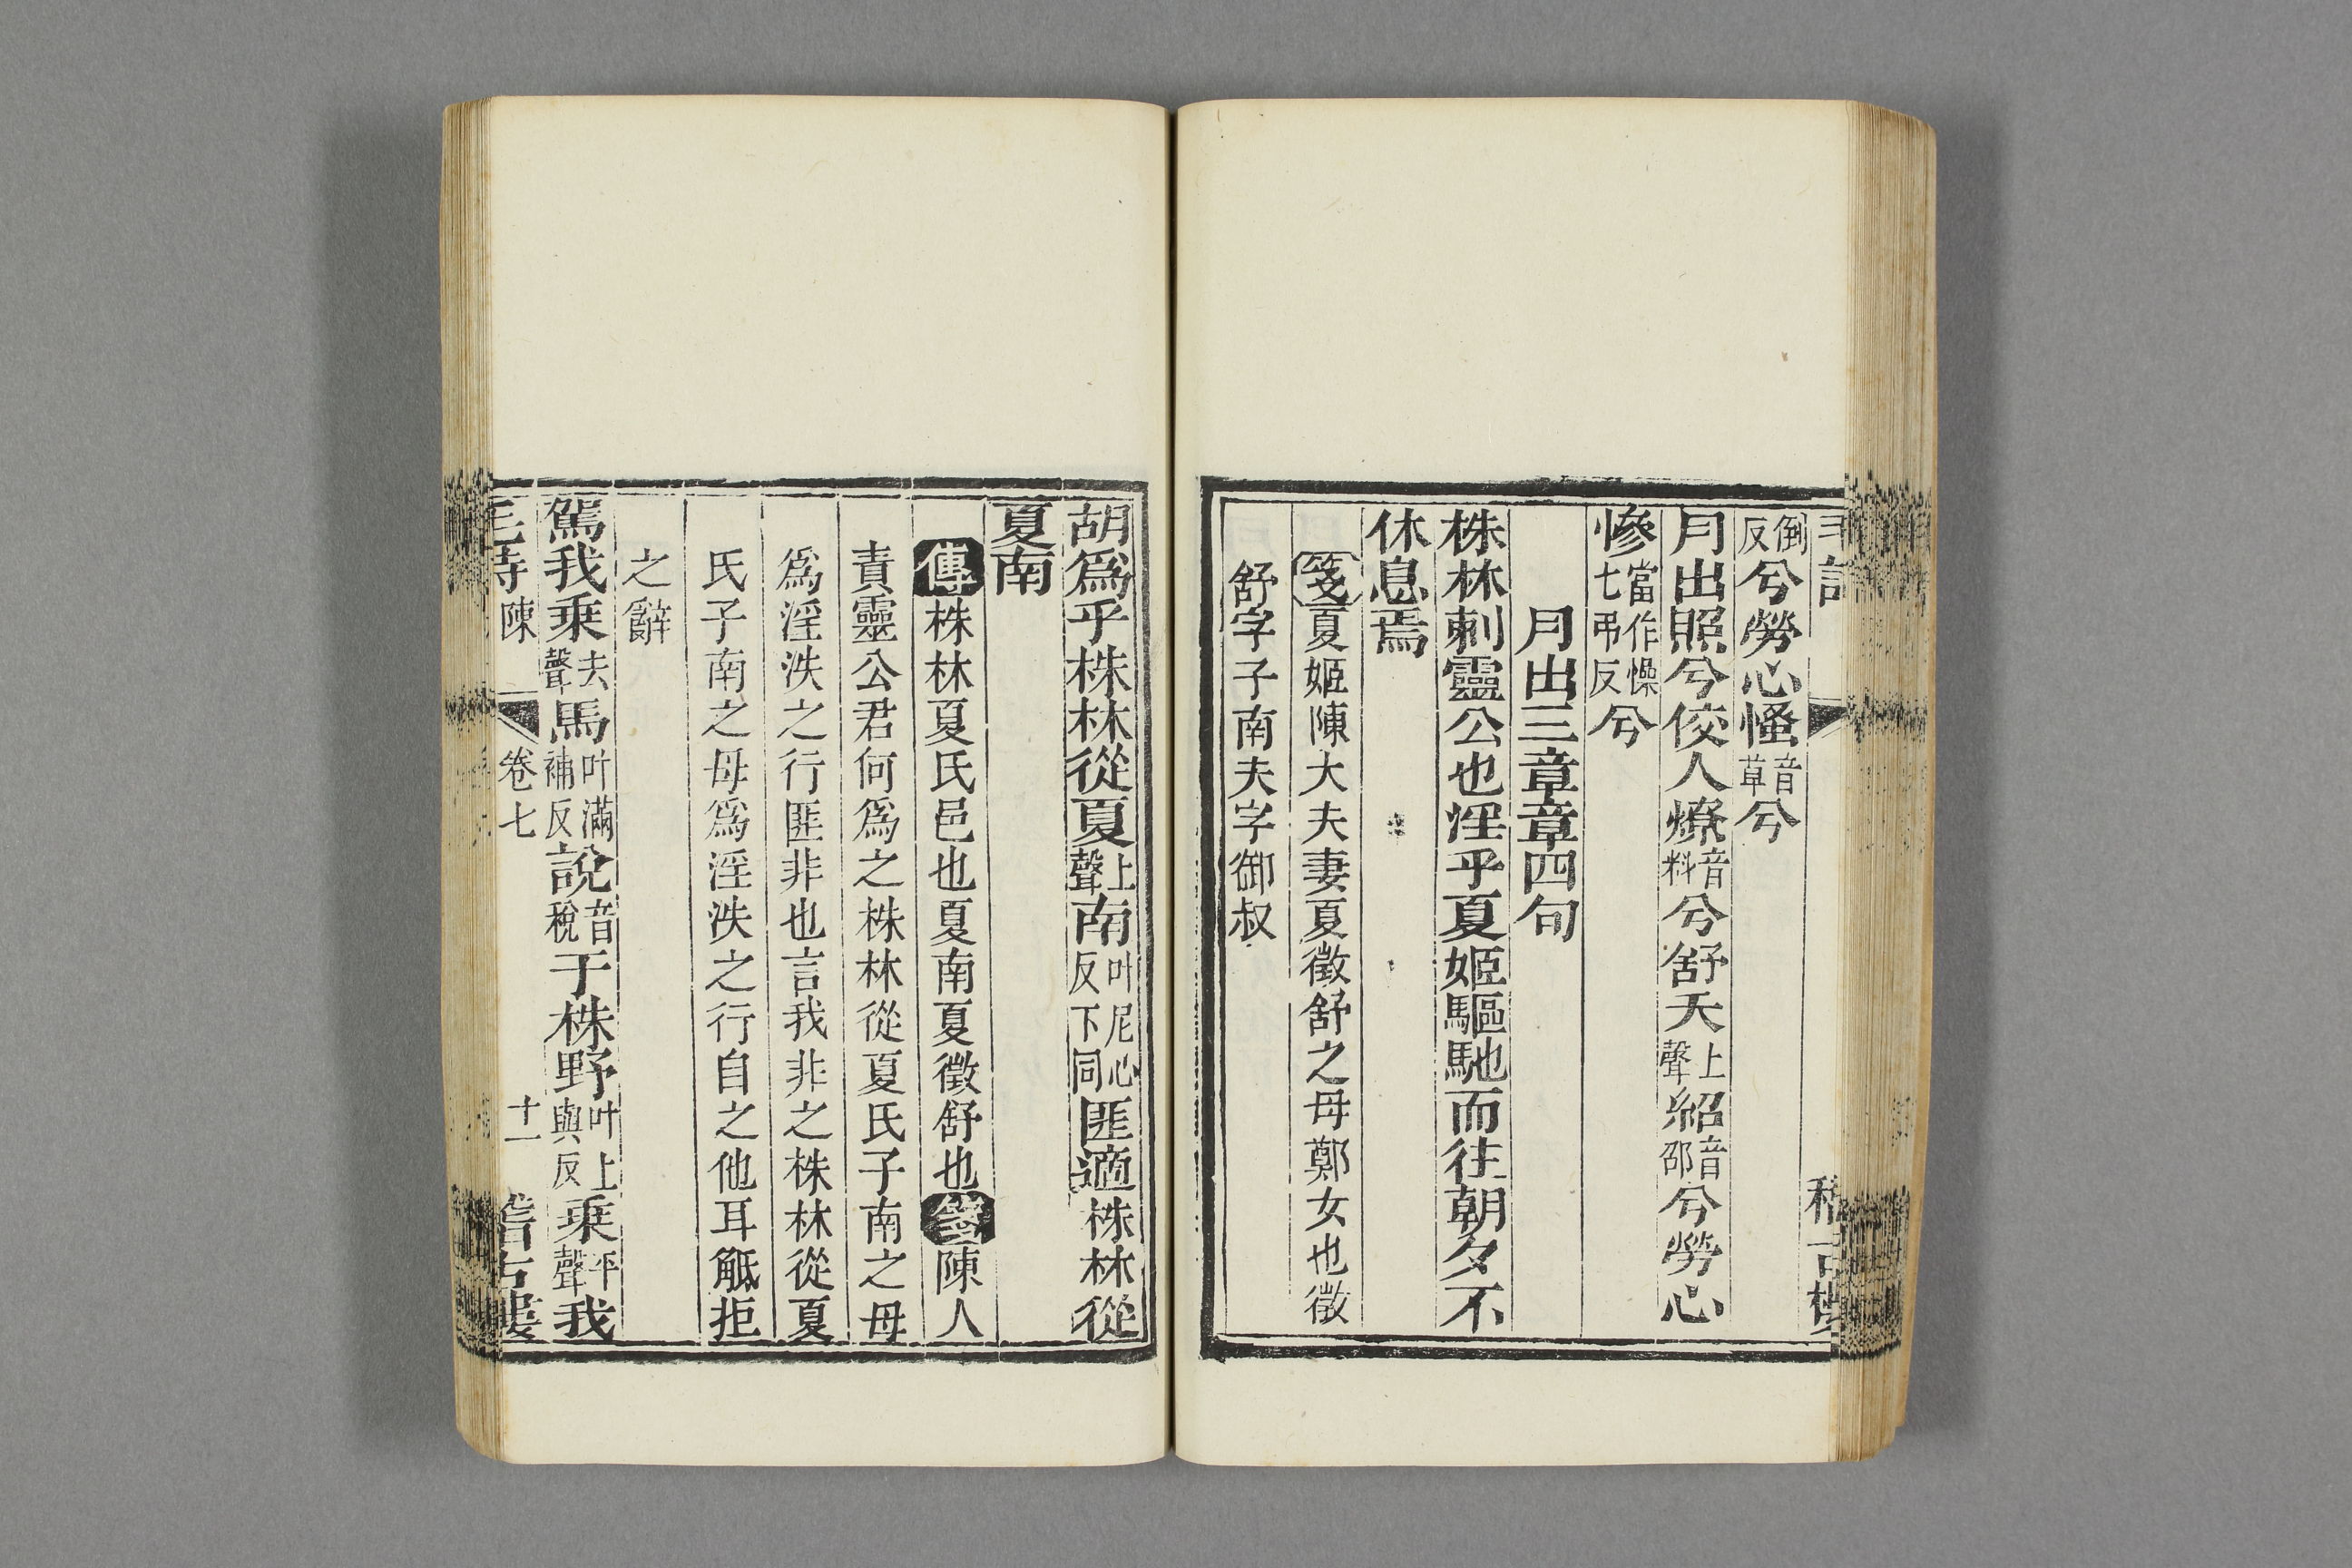 倒反兮勞心慅音草兮
月出照兮佼人燎音料兮舒夭上聲紹音邵兮勞心
慘當作懆七弔反兮
月出三章章四句
株林刺靈公也淫乎夏姬驅馳而往朝夕不
休息焉
箋夏姬陳大夫妻夏徵舒之母鄭女也徵
舒字子南夫字御叔
胡爲乎株林從夏上聲南叶尼心反下同匪適株林從
夏南
傳株林夏氏邑也夏南夏徵舒也箋陳人
責靈公君何爲之株林從夏氏子南之母
爲淫泆之行匪非也言我非之株林從夏
氏子南之母爲淫泆之行自之他耳觝拒
之辭
駕我乘去聲馬叶滿補反說音稅于株野叶上與反乘平聲我
毛詩 陳 卷七 十一 稽古樓